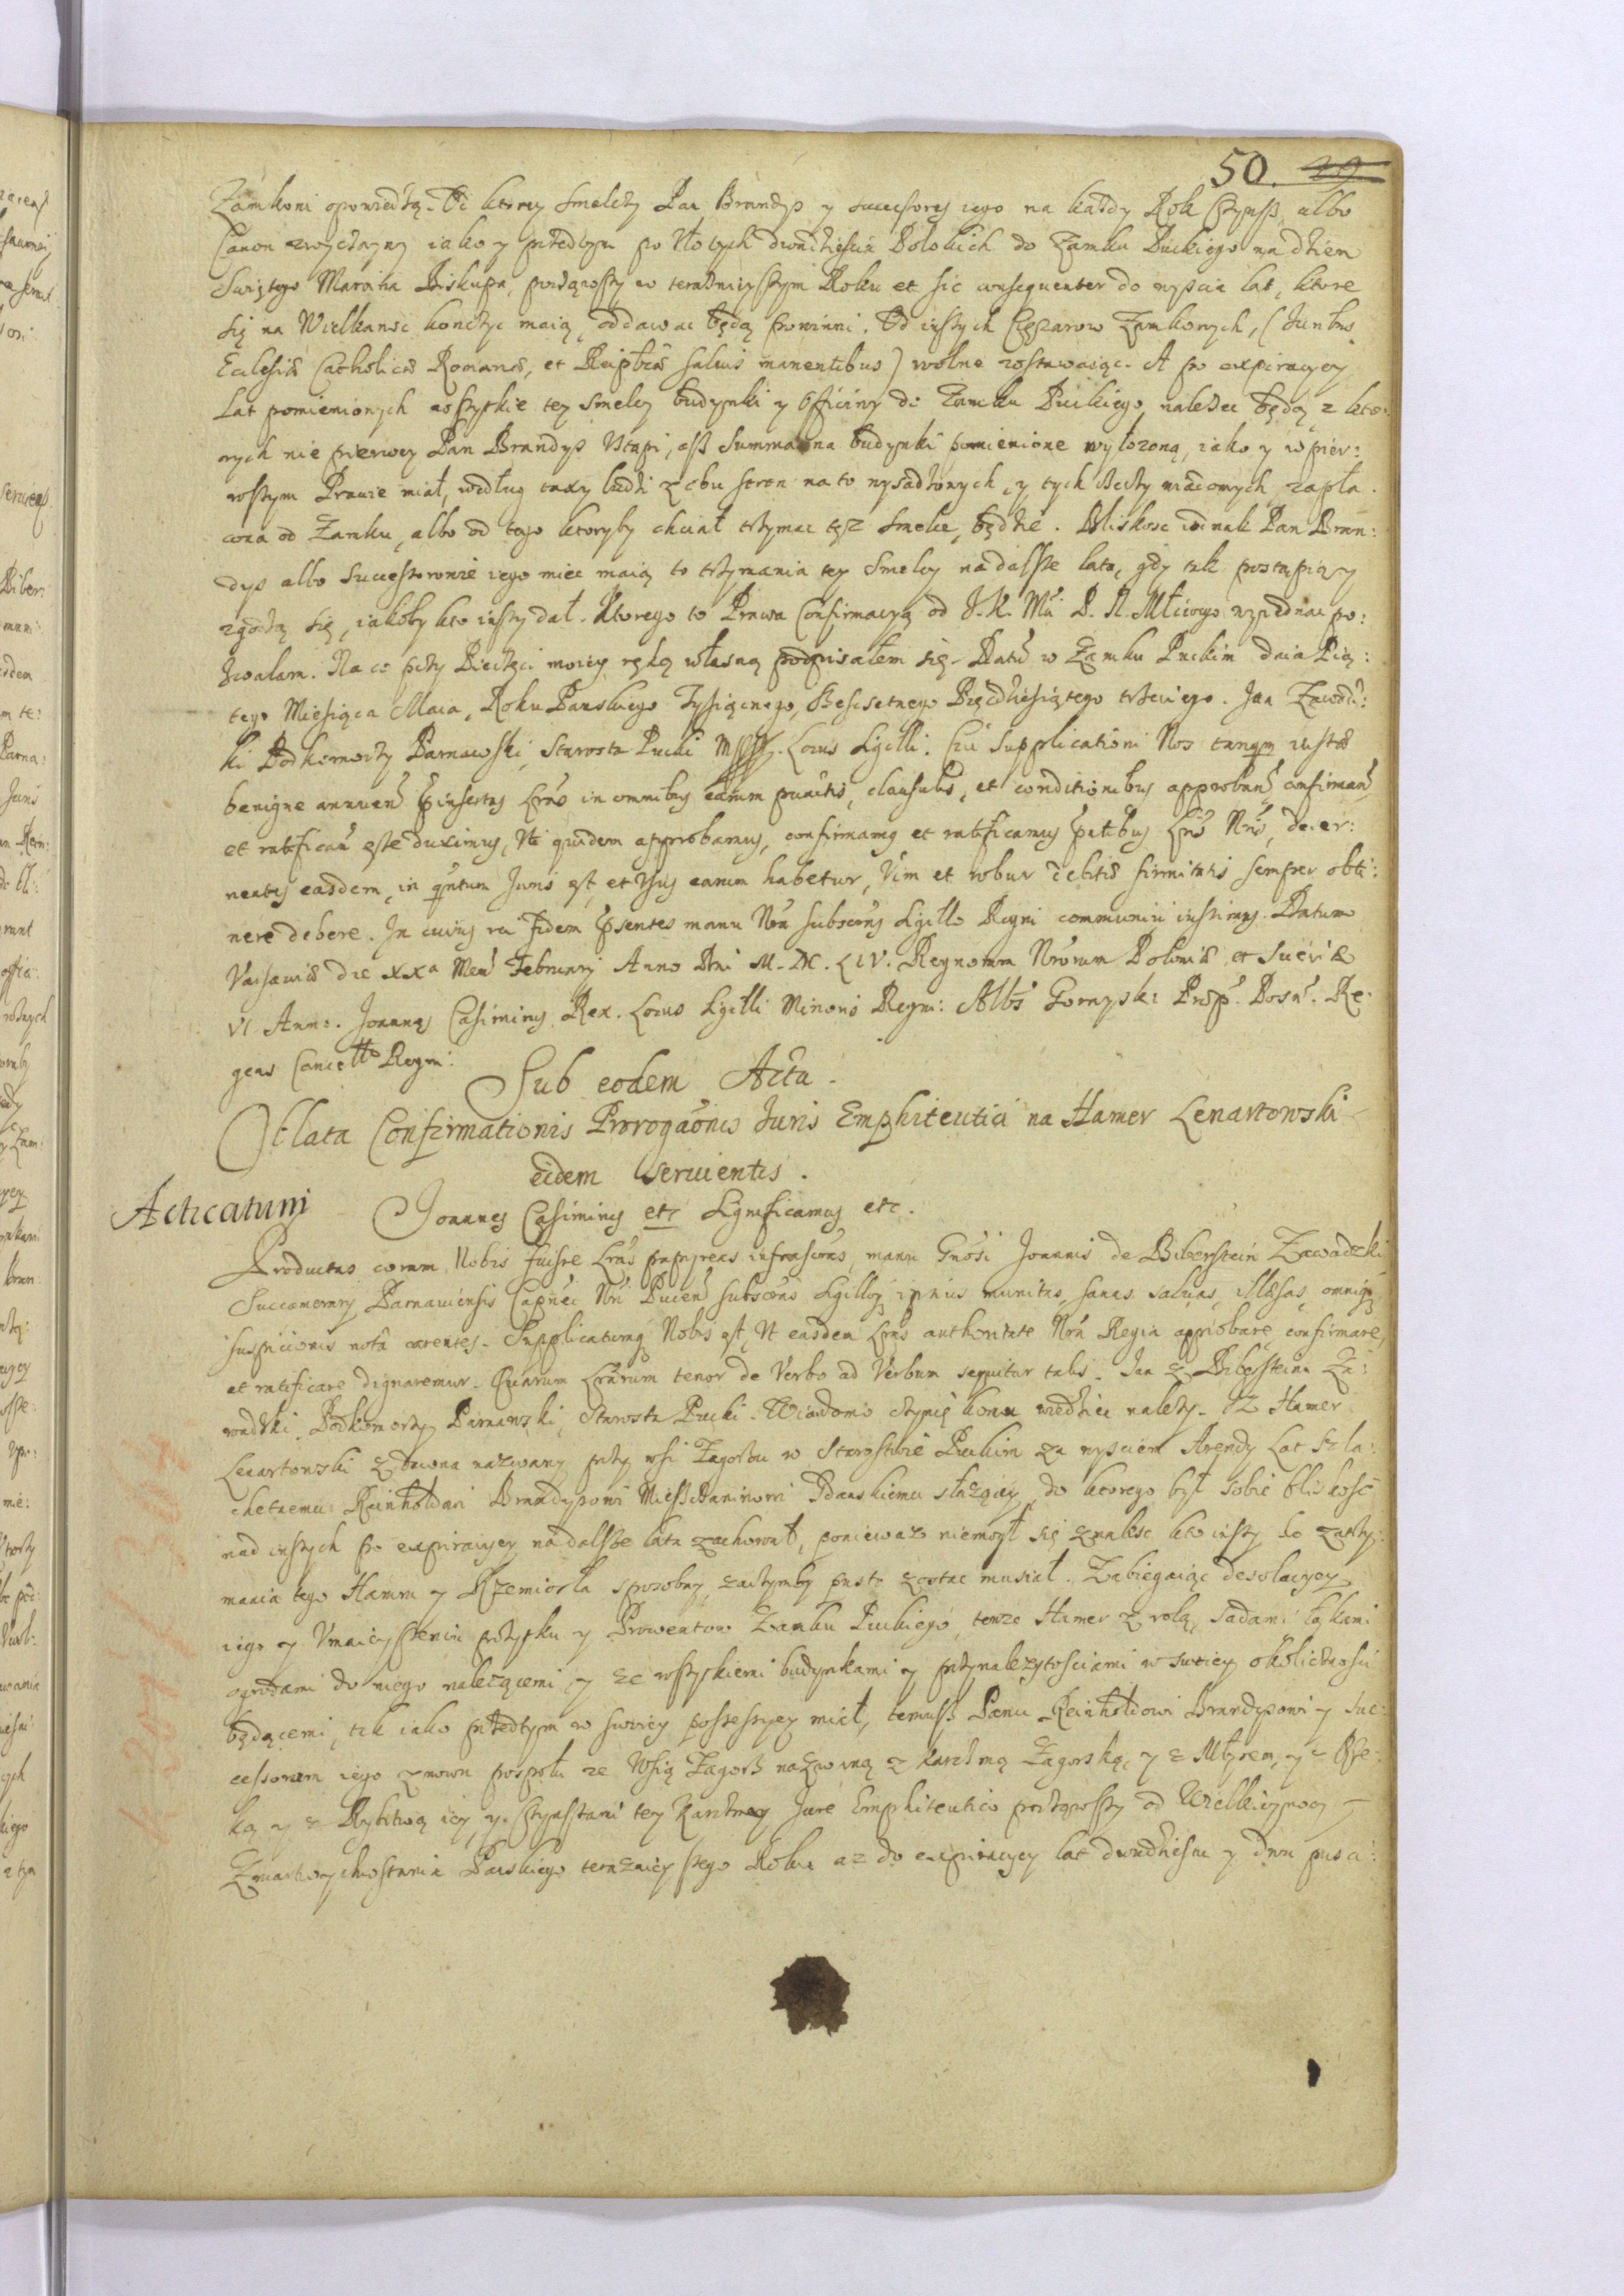 50. 49
Zamkowi opowiedzą. Od ktorey Smelcy Pan Brandys y successores iego na każdy Rok Czynsz albo
Canon zwyczayny iako y przedtym po złotych dwudziestu Polskich do Zamku Puckiego na dzien
Swiętego Marcina Biskupa, począwszy w teraznieyszym Roku et sic consequenter do wyscia lat, ktore
się na Wielkanoc konczyc maią, oddawac będą powinni. Od inszych Cięzarow Zamkowych, (Juribus
Ecclesiæ Catholicæ Romanæ, et Reiptcæ salvis manentibus) wolne zostawaiąc. A po expiracyey
Lat pomienionych wszytkie tey Smelcy budynki y Officiny do Zamku Puckiego, nalezec będą z kto:
rych nie pierwey Pan Brandys Ustąpi, asz Summa na budynki pomienione wyłozoną, iako y w pier:
wszym Prawie miał, według taxy ludzi z obu stron na to wysadzonych, y tych Rzeczy wiadomych zapła.
cona od Zamku, albo od tego ktoryby chciał trzymac tęsz Smelce, będzie. Bliskosc iednak Pan Bran:
dys albo Successorowie iego miec maią to trzymania tey Smelcy na dalsze lata, gdy tak postąpią y
zgodzą się, iakoby kto inszy dał. Ktorego to Prawa Confirmacyą od J. K. Mci P. N. Młciwego ziednac po:
zwalam. Na co przy Pieczęci moiey ręką własną podpisałem się. Datt w Zamku Puckim dnia Pią:
tego Miesiąca Maia, Roku Panskiego Tysiącnego, Szescsetnego Pięcdziesiątego trzeciego. Jan Zawadz:
ki Podkomorzy Parnawski, Starosta Pucki Locus Sigilli. Cui Supplicationi Nos tanqm iustæ
benigne annuen̄ præinsertas Lrās in omnibus earum punctis, clausulis, et conditionibus approban̄ confirman̄
et ratifican̄ esse duximus, Uti quidem approbamus, confirmamq et ratificamus prātibus Lrīs Nrīs, decer:
nentes easdem, in qntum Juris est, et Usus earum habetur, Vim et robur debitæ firmitatis semper obti:
nere debere. In cuius rei fidem prāsentes manu Nrā subscrās Sigillo Regni communiri iussimus. Datum
Varsaviæ die xxa Men̄ Februarij Anno Dni M. DC. LIV. Regnorum Nrōrum Poloniæ et Sueciæ
VI Anno. Joannes Casimirus Rex. Locus Sigilli Minoris Regni: Albs Gorayski Præp. Posn. Re:
gens Cancellæ Regni.
Sub eodem Acta.
Oblata Confirmationis Prorogaōnis Juris Emphiteutici na Hamer Lenartowski
eidem servientis.
Acticatum
Joannes Casimirus etc Significamus etc.
Productas coram Nobis fuisse Lrās papyreas infrascrās, manu Gnōsi Joannis de Biberstein Zawadzki
Succamerary Parnaviensis Capnei Nri Pucen̄ subscrās Sigilloq ipsius munitas, sanas salvas, illæsas, omniq
suspicionis nota carentes. Supplicatumq Nobis est, Ut easdem Lrās authoritate Nrā Regia approbare, confirmare,
et ratificare dignaremur. Quarum Lrārum tenor de Verbo ad Verbum sequitur talis. Jan z Bibersteina Za:
wadzki Podkomorzy Parnawski, Starosta Pucki. Wiadomo czynię komu wiedziec nalezy. Iz Hamer
Lenartowski zdawna nazwany przy wsi Zagorzu w Starostwie Puckim za wysciem Arendy Lat szla:
chetnemu Reinholdowi Brandysowi Mieszczaninowi Gdanskiemu słuzącey, do ktorego był sobie bliskosc
nad inszych po expiracyey na dalsze lata zachował, poniewasz niemogł się znalesc kto inszy do zatrzy:
mania tego Hamru y Rzemiosła sposobny, zaczymby pusto zostac musiał. Zabiegaiąc desolacyey
iego y Umnieyszeniu pożytku y Prowentow Zamku Puckiego, tenze Hamer z rolą, sadami łąkami
ogrodami do niego nalezącemi, y ze wszytkiemi budynkami y przynalezytosciami w swoiey okolicznosci
będącemi, tak iako przedtym w swoiey possessyey miał, temusz Panu Reinholdowi Brandysowi y Suc:
cessorom iego znowu pospołu ze Wsią Zagorz nazwaną z karczmą Zagorską, y z Młynem, y z Rze:
ką y z Rybitwą iey, y czynszami tey Karczmy Jure Emphiteutico począwszy od Wielkieynocy
Zmartwychwstania Panskiego teraznieyszego Roku az do expiracyey lat dwudziestu y dwu puscic: